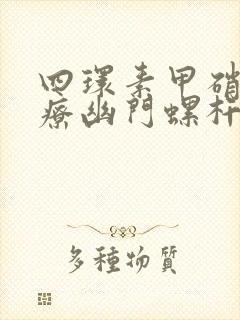 四環素甲硝
療幽門螺杆
多種物質